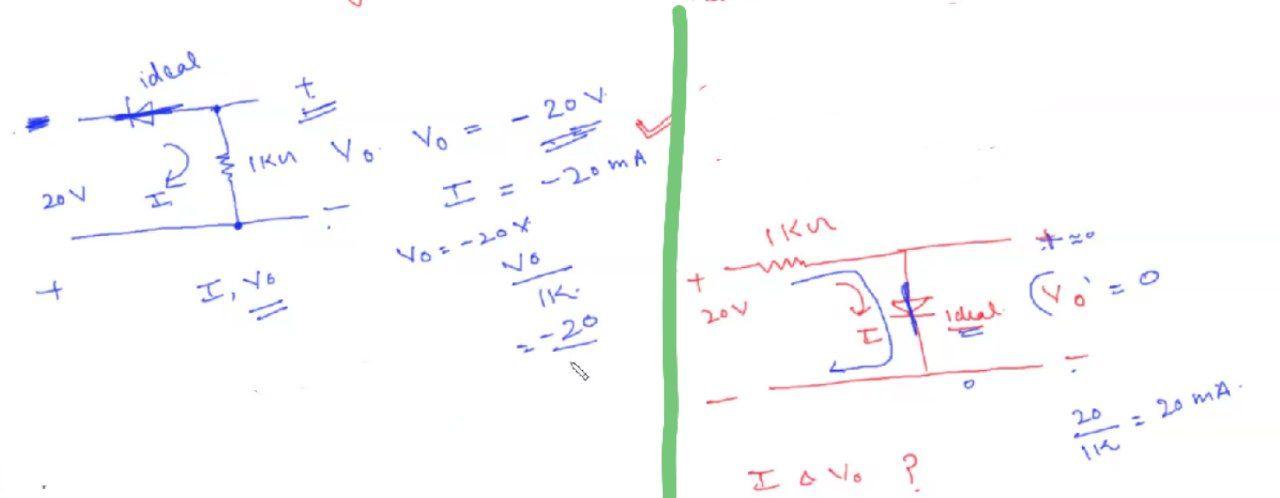 ideal
+
20V
I
1KΩ
V₀
V₀ = -20V
I = -20mA
V₀ = -20V
V₀
1K
= -20
-
+
I, V₀
1KΩ
+
20V
I
ideal
+ ≈0
(V₀ = 0
-
-
0
20
1K
= 20mA.
I & V₀ ?